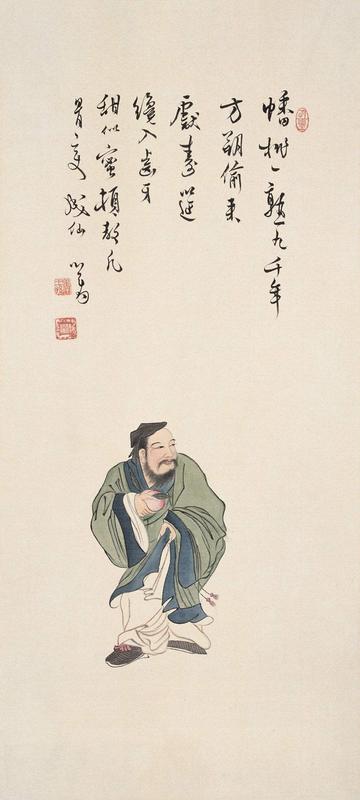 蟠桃一熟九千年
方朔偷來
獻壽筵
纔入齒牙
甜似蜜頓教凡
骨變成仙 心畬